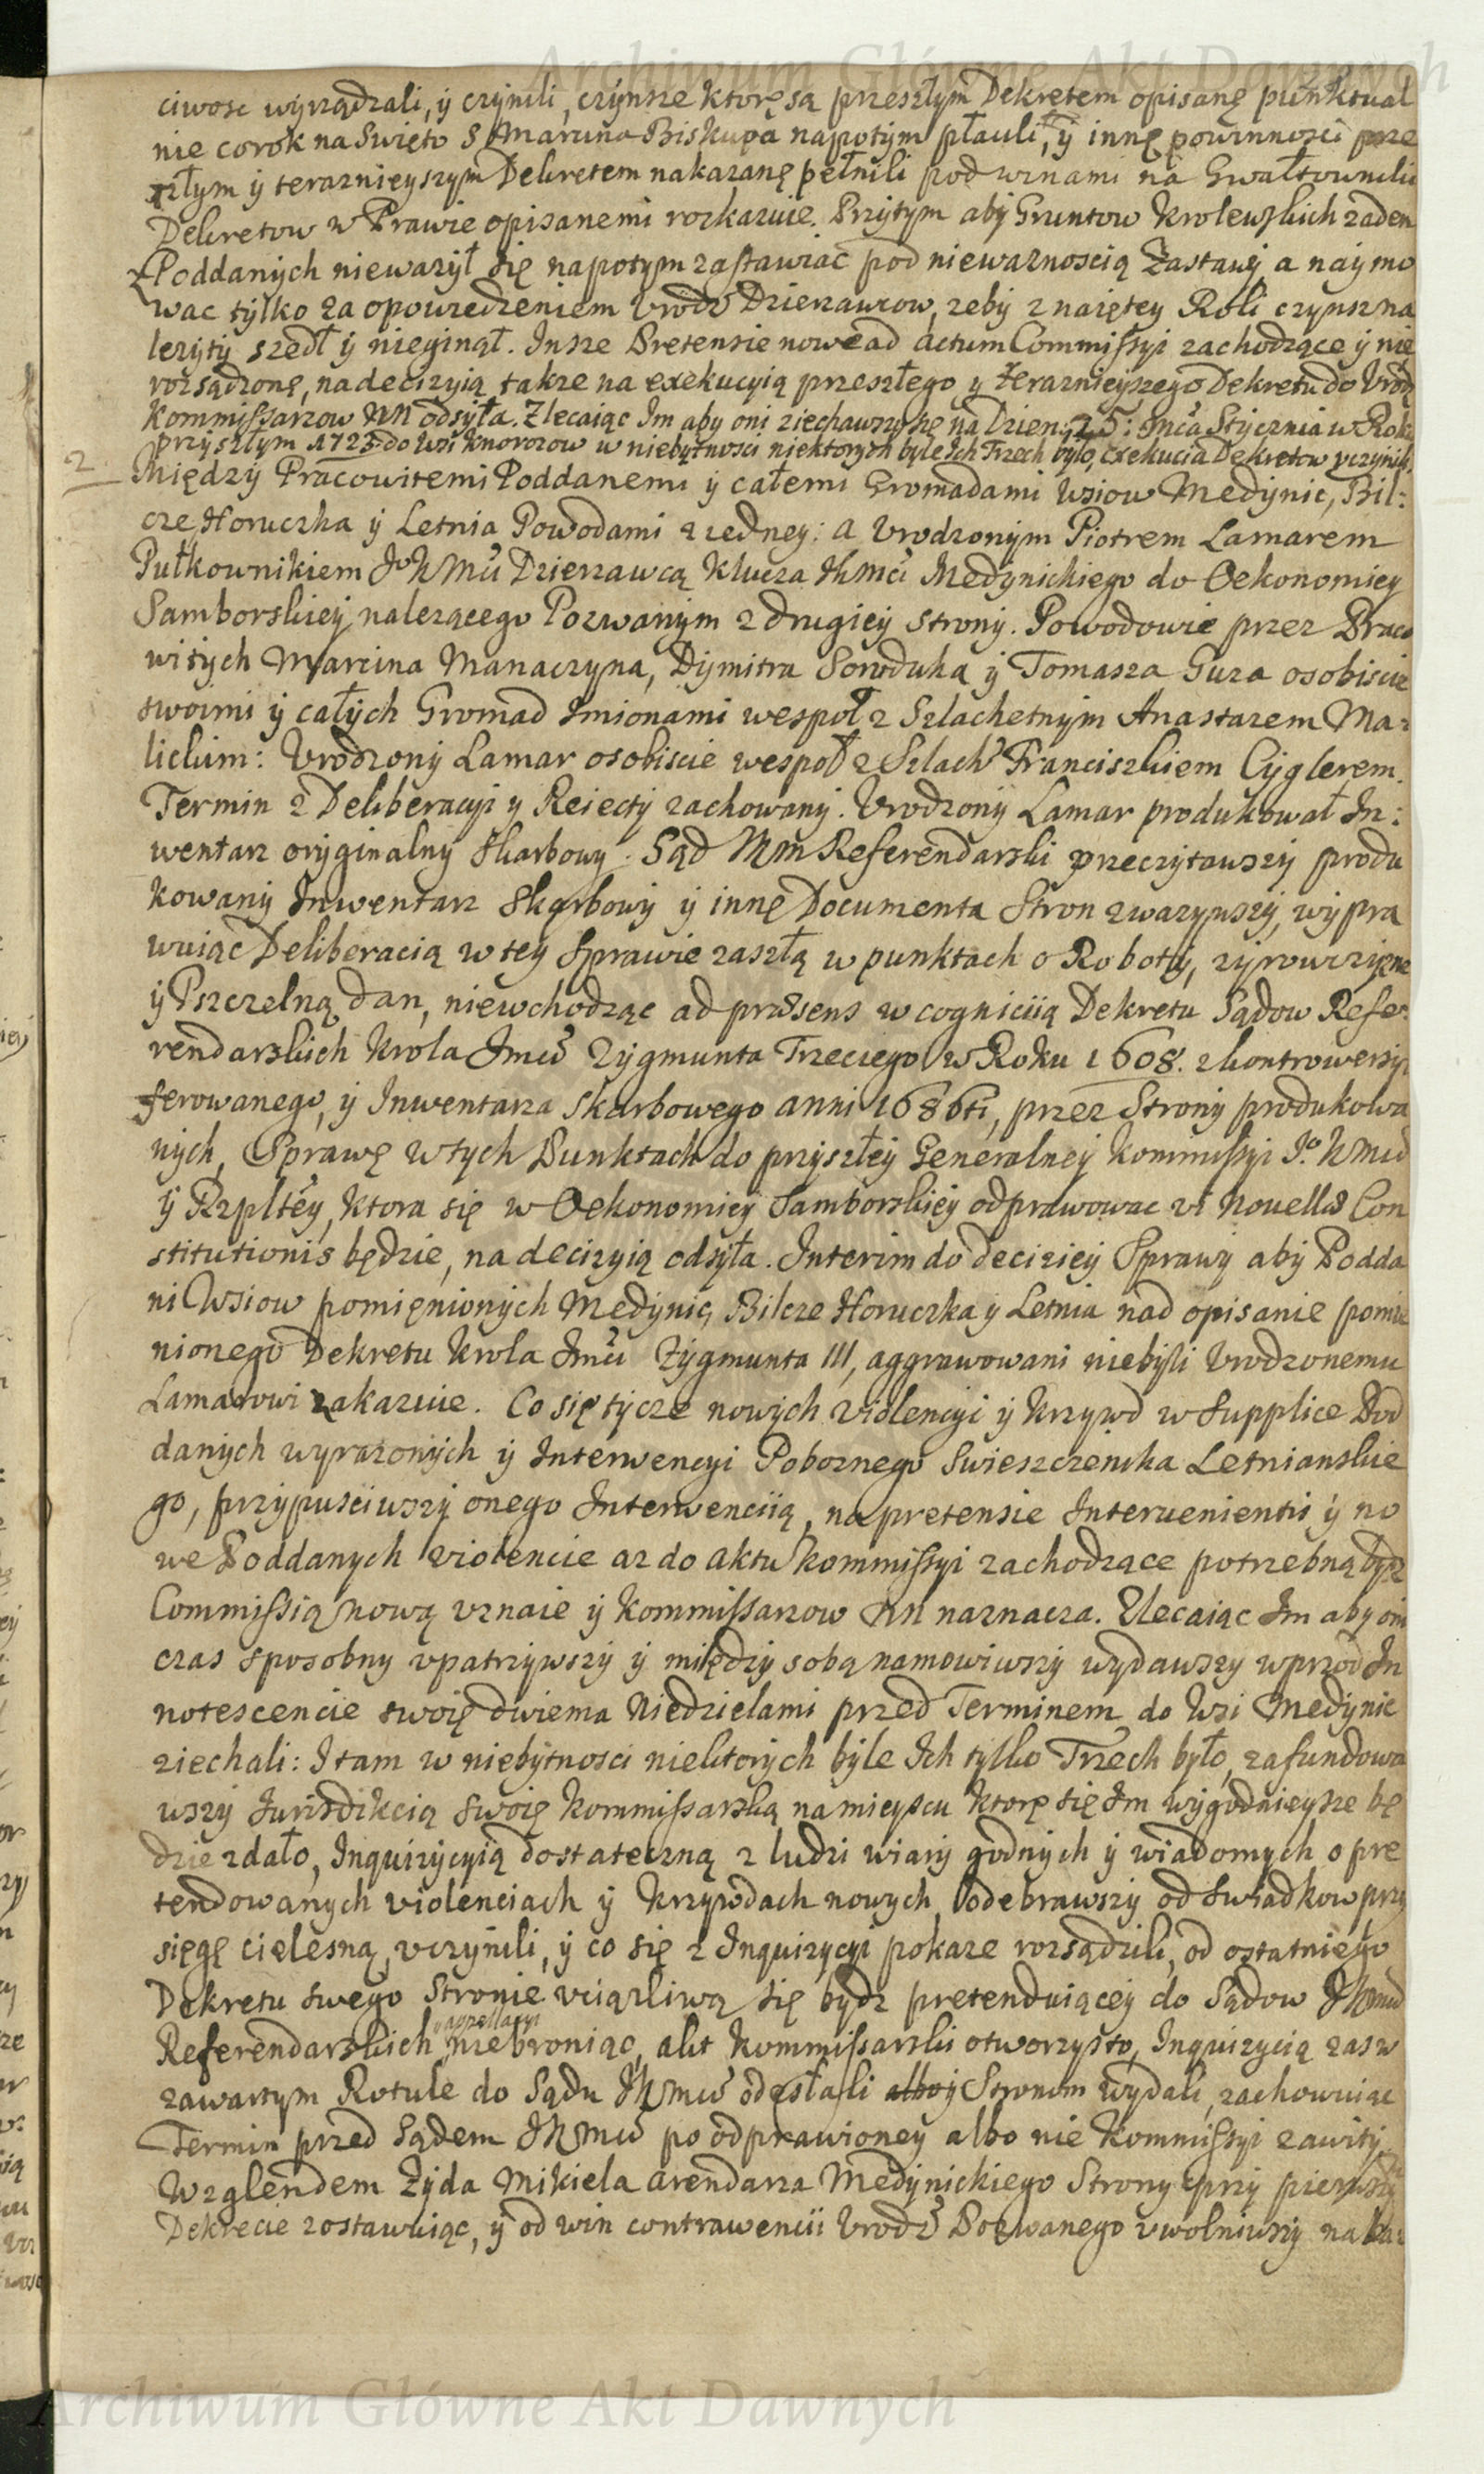 Archiwum Główne Akt Dawnych
ciwosc wyrządzali, y czynili, czynsze ktorę są przeszłym Dekretem opisanę punktual
nie corok na Swięto S Marcina Biskupa napotym płacili, y innę powinnosci prze
szłym y teraznieyszym Dekretem nakazanę pełnili pod winami na Gwałtowniki
Dekretow w Prawie opisanemi rozkazuie. Przytym aby Gruntow Krolewskich zaden
z Poddanych niewazył się napotym zastawiac pod niewaznoscią Zastawy a naymo
wac tylko za opowiedzeniem Vrodz Dzierzawcow, zeby z naiętey Roli czynsz na
lezyty szedł y nieginął. Insze Pretensie nowe ad actum Commissyi zachodzące y nie
rozsądzonę, na decizyią takze na exekucyią przeszłego y teraznieyszego Dekretu do Vrodz
Kommissarzow NN odsyła. Zlecaiąc Im aby oni ziechawszy się na Dzien 25: Mca Stycznia w Roku
przyszłym 1723 do Wsi Knorozow w niebytnosci niektorych byle Ich Trzech było, exekucia Dekretow vczynili.
2 Między Pracowitemi Poddanemi y całemi Gromadami Wsiow Medynic, Bil:
cze Horuczka y Letnia Powodami z iedney: a Vrodzonym Piotrem Lamarem
Pułkownikiem Jo KMci Dzierzawcą Klucza JKMci Medynickiego do Oekonomiey
Samborskiey nalezącego Pozwanym z drugiey strony. Powodowie przez Praco
witych Marcina Manaczyna, Dymitra Sowduka y Tomasza Guza osobiscie
swoimi y całych Gromad Imionami wespoł z Szlachetnym Anastazem Ma:
lickim: Vrodzony Lamar osobiscie wespoł z Szlach Franciszkiem Cyglerem.
Termin z Deliberacyi y Reiecty zachowany. Vrodzony Lamar produkował In:
wentarz oryginalny Skarbowy. Sąd NM Referendarski przeczytawszy produ
kowany Inwentarz Skarbowy y innę Documenta Stron zwazywszy, wypra
wuiąc Deliberacią w tey Sprawie zaszłą w punktach o Roboty, zyrowczyznę
y Pszczelną dan, niewchodząc ad præsens w cogniciią Dekretu Sądow Refe:
rendarskich Krola Jmci Zygmunta Trzeciego w Roku 1608. z kontrowersyi
ferowanego, y Inwentarza Skarbowego anni 1686ti, przez Strony produkowa
nych, Sprawę w tych Punktach do przyszłey Generalney Kommissyi Jo. KMci
y Rzpltey, ktora się w Oekonomiey Samborskiey odprawowac vi Novellæ Con
stitutionis będzie, na decizyią odsyła. Interim do deciziey Sprawy aby Podda
ni Wsiow pomięnionych Medynic, Bilcze Horuczka y Letnia nad opisanie pomie
nionego Dekretu Krola Jmci Zygmunta III, aggrawowani niebyli Vrodzonemu
Lamarowi zakazuie. Co się tycze nowych violencyi y krzywd w Supplice Pod
danych wyrazonych y Interwencyi Poboznego Swieszczenika Letnianskie
go, przypusciwszy onego Interwenciią, na pretensie Intervenientis y no
we Poddanych violencie az do aktu Kommissyi zachodzące potrzebną bydz
Commissią nową vznaie y Kommissarzow NN naznacza. Zlecaiąc Im aby oni
czas sposobny vpatrzywszy y między sobą namowiwszy wydawszy wprzod In
notescencie swoię dwiema Niedzielami przed Terminem do Wsi Medynic
ziechali: I tam w niebytnosci niektorych byle Ich tylko Trzech było, zafundowa
wszy Jurisdikcią swoię Kommissarską na mieyscu ktorę się Im wygodnieysze bę
dzie zdało, Inquizycyią dostateczną z ludzi wiary godnych y wiadomych o pre
tendowanych violenciach y krzywdach nowych, odebrawszy od swiadkow przy
sięgę cielesną, vczynili, y co się z Inquizycyi pokaze rozsądzili, od ostatniego
Dekretu swego Stronie vciązliwą się bydz pretenduiącey do Sądow JKMci
Referendarskich appellacyi niebroniąc, akt Kommissarski otworzysto, Inquizycią zas w
zawartym Rotule do Sądu JKMci odesłali Stronom wydali, zachowuiąc
Termin przed Sądem JKMci po odprawioney albo nie Kommissyi zawity.
Wzglendem Zyda Mikiela arendarza Medynickiego Strony przy pierwszym
Dekrecie zostawuiąc, y od win contravencii Vrodz Pozwanego vwolniwszy nakaz
Archiwum Główne Akt Dawnych